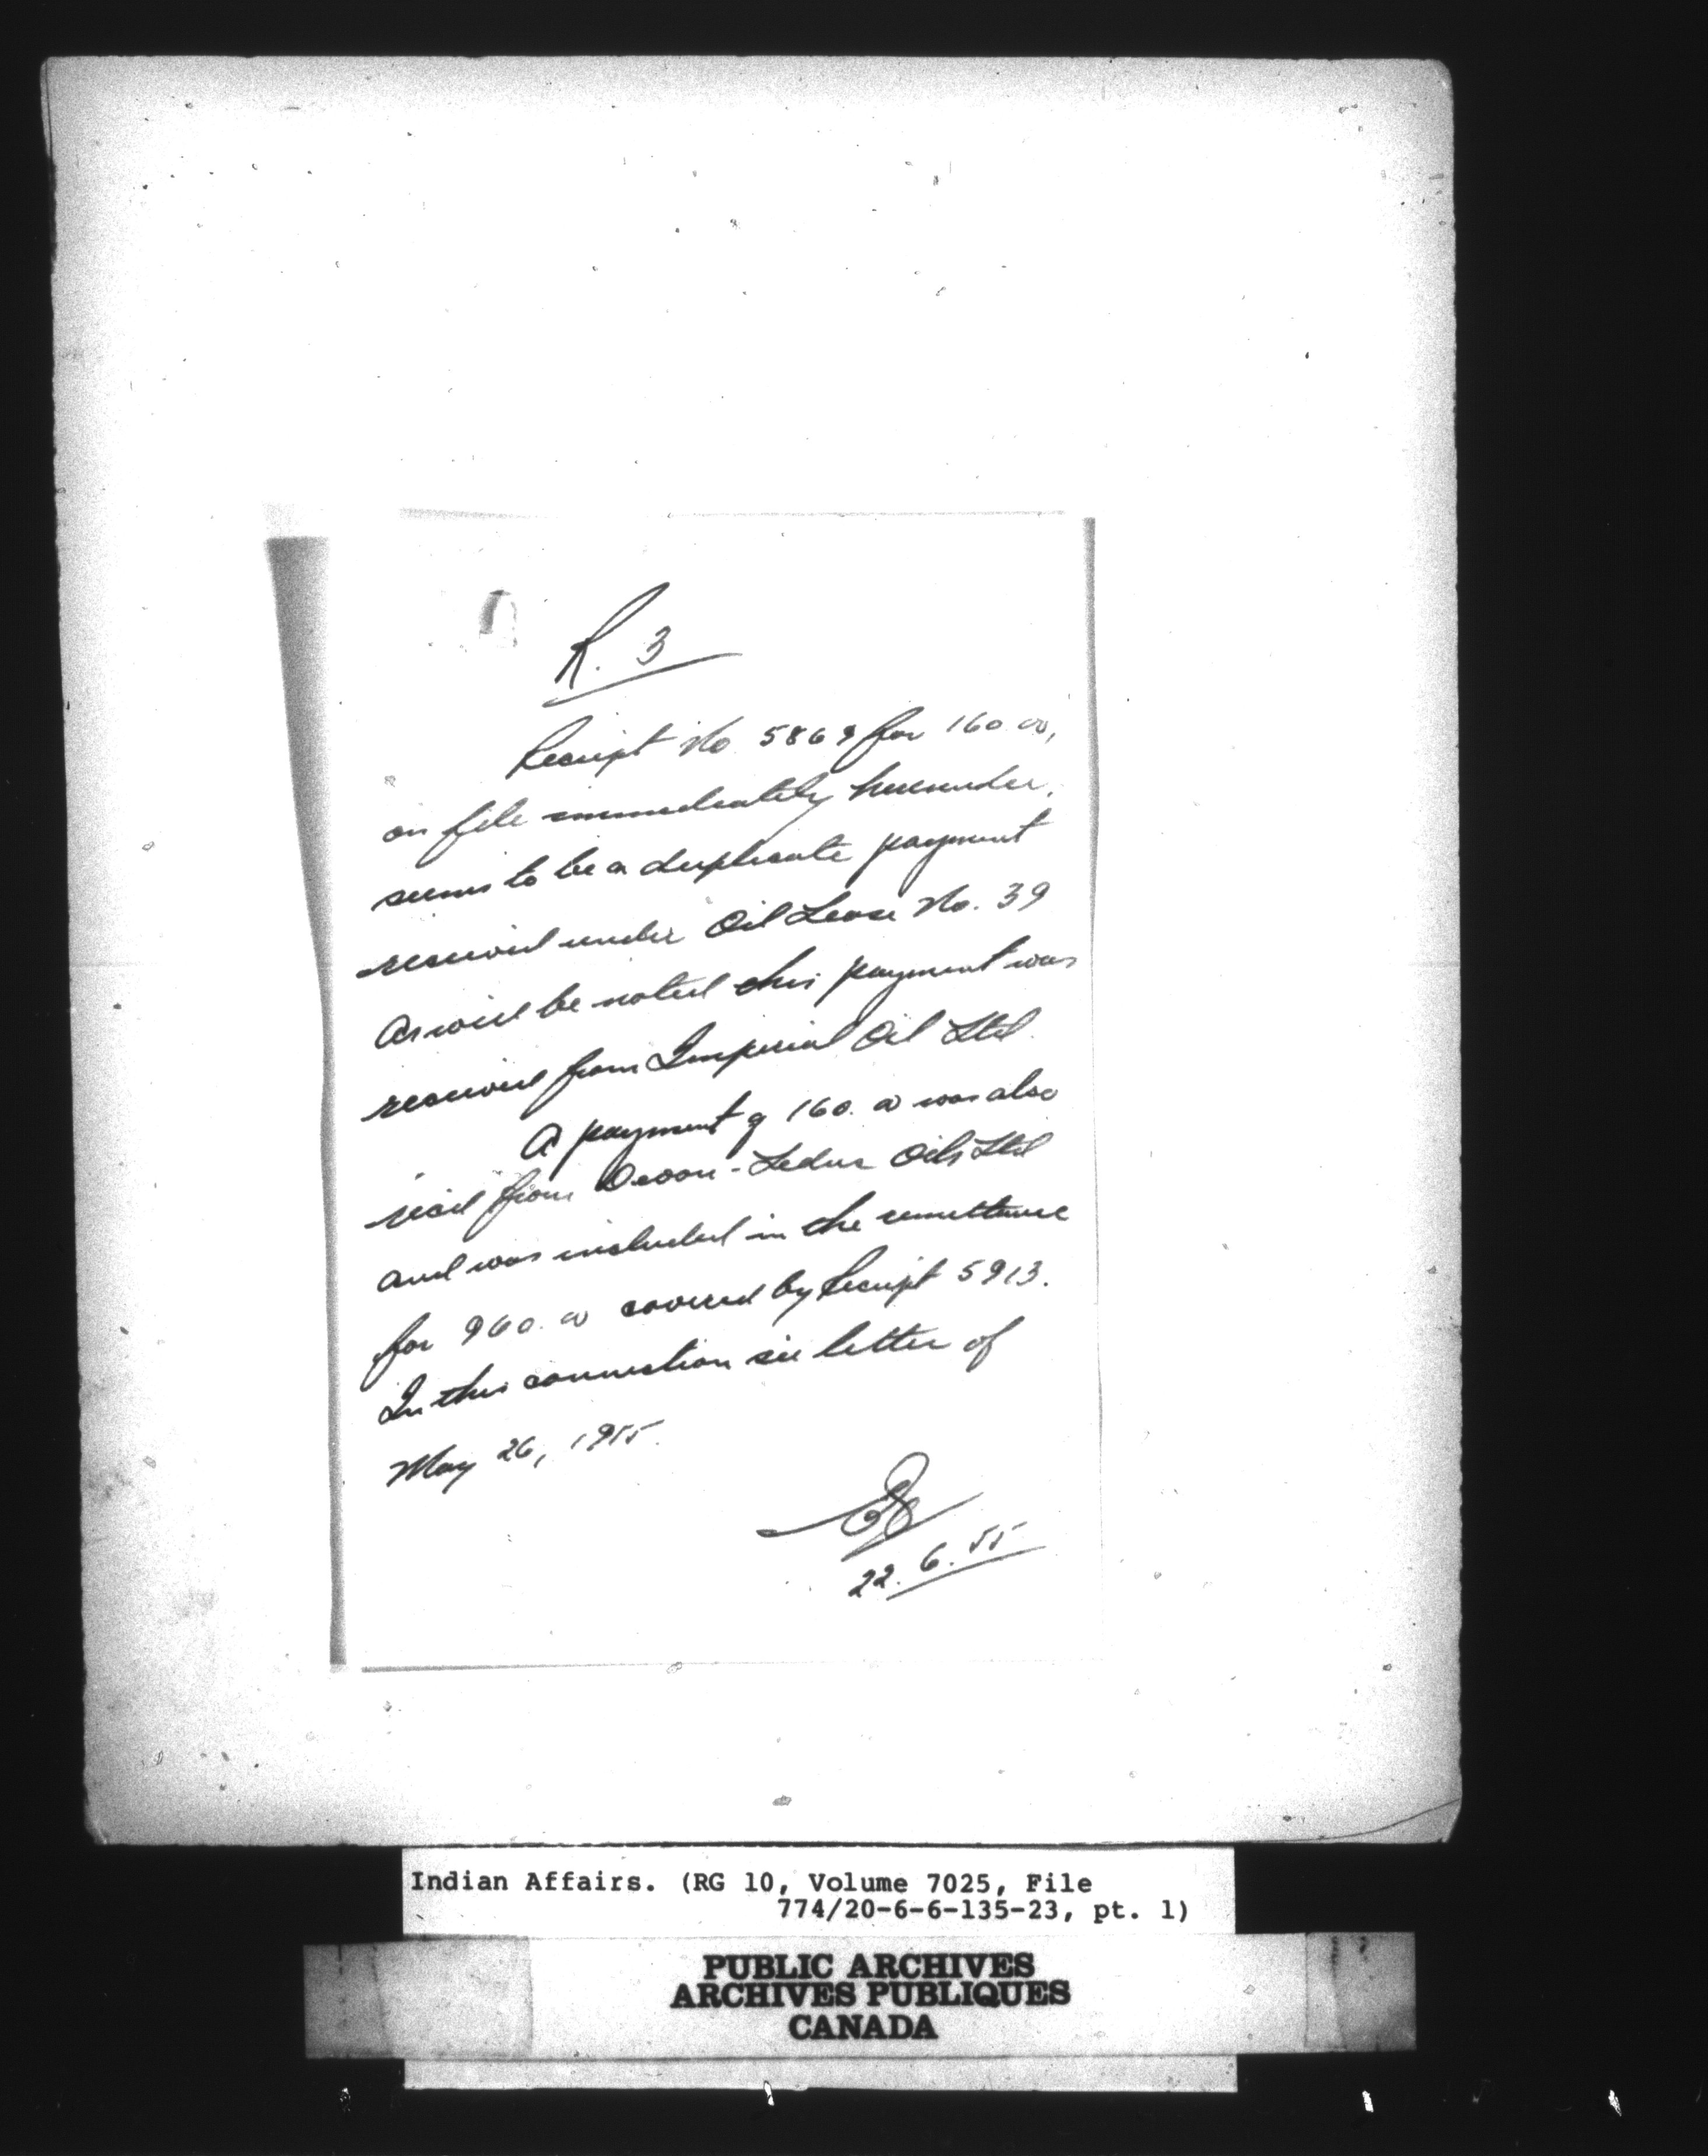 R. 3
Receipt No 5869 for 160.00,
on file immediately hereunder,
seems to be a duplicate payment
received under Oil Lease No. 39
As will be noted this payment was
received from Imperial Oil Ltd.
A payment of 160.00 was also
recd from Devon-Leduc Oils Ltd
and was included in the remittance
for 960.00 covered by Receipt 5913.
In this connection see letter of
May 26, 1955.
22.6.55
Indian Affairs. (RG 10, Volume 7025, File
774/20-6-6-135-23, pt. 1)
PUBLIC ARCHIVES
ARCHIVES PUBLIQUES
CANADA